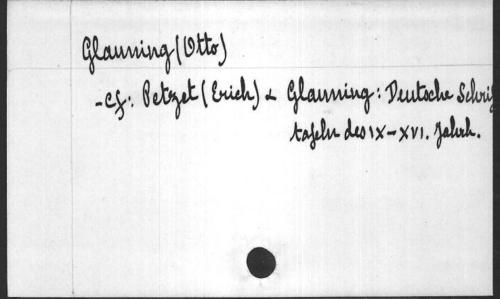 Glauning (Otto)
- cf: Petzet (Erich) & Glauning: Deutsche Schrif
tafeln des IX-XVI. Jahrh.